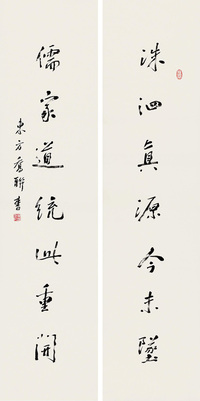 洙泗真源今未墜
儒家道統此重開
東方喬聯書